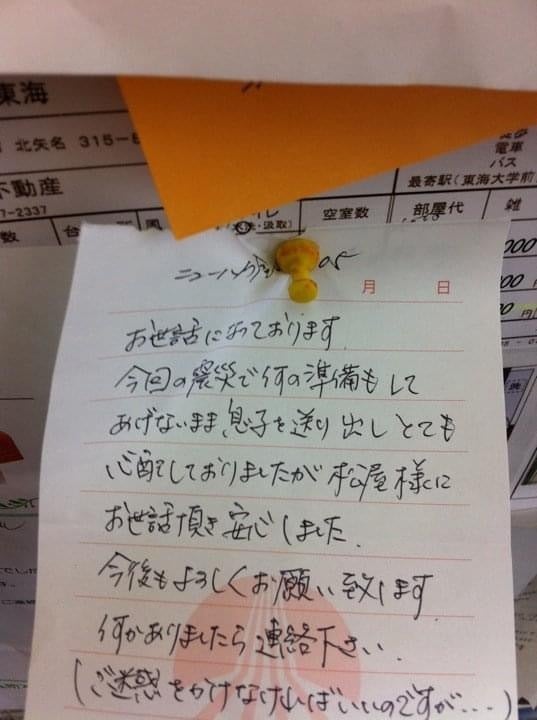 東海
北矢名 315-
不動産
7-2337
電車
バス
最寄駅(東海大学前
空室数
部屋代
雑
数
汲取)
000
000
00 円
ニューハ
05
月 日
お世話になっております
今回の震災で何の準備もして
あげないまま、息子を送り出しとても
心配しておりましたが 松屋様に
お世話頂き安心しました.
今後もよろしくお願い致します
何かありましたら連絡下さい.
(ご迷惑をかけなければいいのですが・・・)